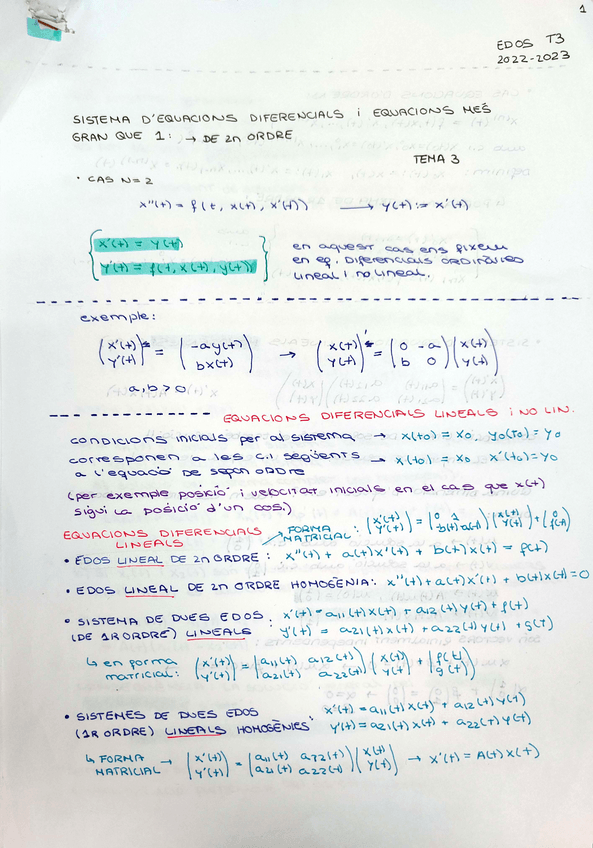 1
EDOS T3
2022-2023
SISTEMA D'EQUACIONS DIFERENCIALS i EQUACIONS MÉS
GRAN QUE 1: → DE 2n ORDRE
TEMA 3
· CAS N=2
x''(t) = f(t, x(t), x'(t)) → y(t) := x'(t)
x'(t) = y(t)
y'(t) = f(t, x(t), y(t))
en aquest cas ens fixem
en eq. DIFERENCIALS ORDINÀRIES
LINEAL i no LINEAL.
exemple:
(x'(t) y'(t)) = (-ay(t) bx(t)) → (x(t) y(t))' = (0 -a b 0)(x(t) y(t))
a,b > 0
EQUACIONS DIFERENCIALS LINEALS i NO LIN.
CONDICIONS inicials per al sistema → x(t0) = x0 y0(t0) = y0
corresponen a les c.i següents → x(t0) = x0 x'(t0) = y0
a l'equació de segon ORDRE
(per exemple posició i velocitat inicials en el cas que x(t)
sigui la posició d'un cos.)
EQUACIONS DIFERENCIALS
LINEALS
FORMA
MATRICIAL: (x'(t) y'(t)) = (0 1 -b(t) -a(t))(x(t) y(t)) + (0 f(t))
· EDOS LINEAL DE 2n ORDRE: x''(t) + a(t)x'(t) + b(t)x(t) = f(t)
· EDOS LINEAL DE 2n ORDRE HOMOGÈNIA: x''(t) + a(t)x'(t) + b(t)x(t) = 0
· SISTEMA DE DUES EDOS: x'(t) = a11(t)x(t) + a12(t)y(t) + f(t)
(DE 1R ORDRE) LINEALS y'(t) = a21(t)x(t) + a22(t)y(t) + g(t)
↳ en forma
matricial: (x'(t) y'(t)) = (a11(t) a12(t) a21(t) a22(t))(x(t) y(t)) + (f(t) g(t))
· SISTEMES DE DUES EDOS x'(t) = a11(t)x(t) + a12(t)y(t)
(1R ORDRE) LINEALS HOMOGÈNIES: y'(t) = a21(t)x(t) + a22(t)y(t)
↳ FORMA
MATRICIAL → (x'(t) y'(t)) = (a11(t) a22(t) a21(t) a22(t))(x(t) y(t)) → x'(t) = A(t)x(t)